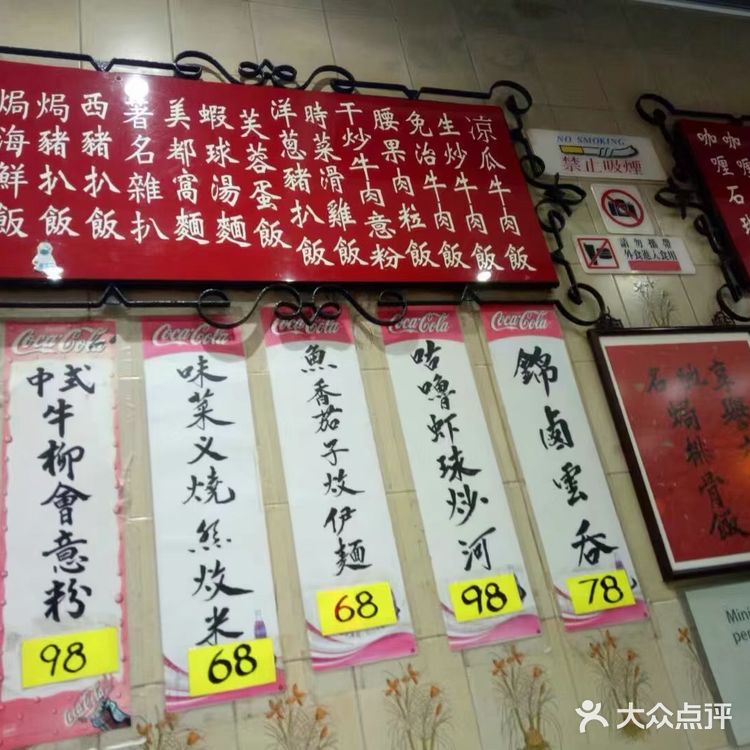 凉瓜牛肉飯
生炒牛肉飯
免治牛肉飯
腰果肉粒飯
干炒牛肉意粉
時菜滑雞飯
洋蔥豬扒飯
芙蓉蛋飯
蝦球湯麵
美都窩麵
著名雜扒
西豬扒飯
焗豬扒飯
焗海鮮飯
NO SMOKING
禁止吸煙
請勿攜帶
外食進入食用
Coca-Cola
中式牛柳會意粉
98
Coca-Cola
味菜义燒炆米
68
Coca-Cola
魚香茄子炆伊麵
68
Coca-Cola
咕嚕虾球炒河
98
Coca-Cola
錦鹵雲吞
78
焗排骨飯
Coca-Cola
大众点评